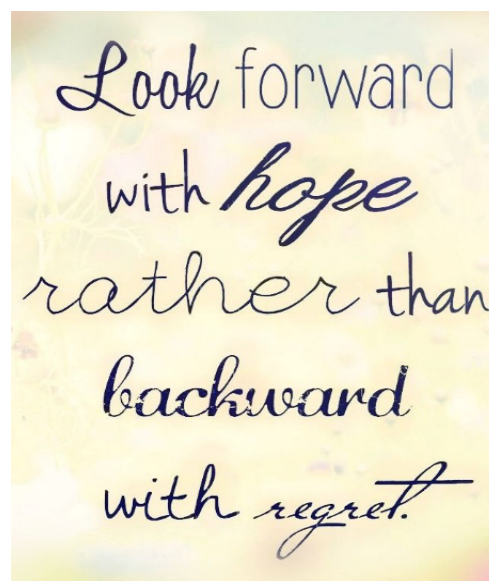 Look forward
with hope
rather than
backward
with regret.